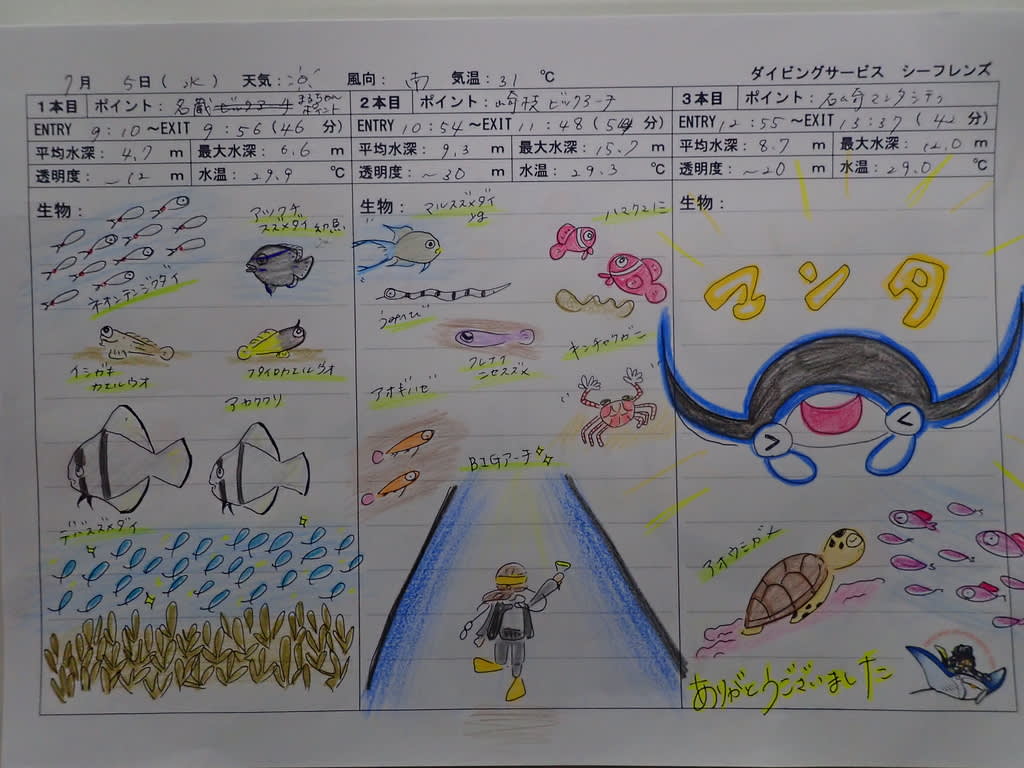 7月 5日(水) 天気: 風向: 南 気温:31 ℃ ダイビングサービス シーフレンズ
1本目 ポイント:名蔵 ポイント
ENTRY 9:10~EXIT 9:56(46 分)
平均水深: 4.7 m 最大水深: 6.6 m
透明度: ~12 m 水温: 29.9 ℃
生物:
アツクチスズメダイ 幼魚
ネオンテンジクダイ
イシガキカエルウオ
フタイロカエルウオ
アカククリ
デバスズメダイ
2本目 ポイント:崎枝 ビッグアーチ
ENTRY 10:54~EXIT 11:48(54 分)
平均水深: 9.3 m 最大水深: 15.7 m
透明度: ~30 m 水温: 29.3 ℃
生物:
マルスズメダイ
ハマクマノミ
クレナイニセスズメ
キンチャクガニ
アオギハゼ
BIGアーチ
3本目 ポイント:石崎マンタシティ
ENTRY 12:55~EXIT 13:37(42 分)
平均水深: 8.7 m 最大水深: 12.0 m
透明度: ~20 m 水温: 29.0 ℃
生物:
マンタ
アオウミガメ
ありがとうございました